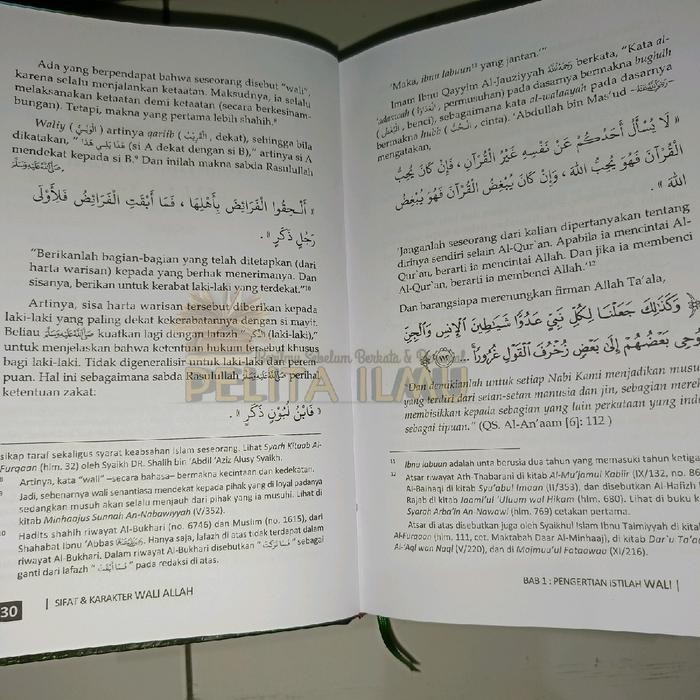 Ada yang berpendapat bahwa seseorang disebut "wali",
karena selalu menjalankan ketaatan. Maksudnya, ia selalu
melaksanakan ketaatan demi ketaatan (secara berkesinam-
bungan). Tetapi, makna yang pertama lebih shahih.⁸
Waliy (الْوَلِيُّ) artinya qariib (الْقَرِيْبُ, dekat), sehingga bila
dikatakan, " هَذَا يَلِي هَذَا (si A dekat dengan si B)," artinya si A
mendekat kepada si B.⁹ Dan inilah makna sabda Rasulullah
ﷺ
« أَلْحِقُوا الْفَرَائِضَ بِأَهْلِهَا ، فَمَا أَبْقَتِ الْفَرَائِضُ فَلِأَوْلَى
رَجُلٍ ذَكَرٍ » .
"Berikanlah bagian-bagian yang telah ditetapkan (dari
harta warisan) kepada yang berhak menerimanya. Dan
sisanya, berikan untuk kerabat laki-laki yang terdekat."¹⁰
Artinya, sisa harta warisan tersebut diberikan kepada
laki-laki yang paling dekat kekerabatannya dengan si mayit.
Beliau ﷺ kuatkan lagi dengan lafazh "ذَكَر" (laki-laki),
untuk menjelaskan bahwa ketentuan hukum tersebut khusus
bagi laki-laki. Tidak digeneralisir untuk laki-laki dan perem-
puan. Hal ini sebagaimana sabda Rasulullah ﷺ perihal
ketentuan zakat:
« فَابْنُ لَبُوْنٍ ذَكَرٍ » .
sikap taraf sekaligus syarat keabsahan Islam seseorang. Lihat Syarh Kitaab Al-
Furqaan (hlm. 32) oleh Syaikh DR. Shalih bin 'Abdil 'Aziz Alusy Syaikh.
Artinya, kata "wali" –secara bahasa– bermakna kecintaan dan kedekatan.
Jadi, sebenarnya wali senantiasa mendekat kepada pihak yang di loyal padanya
sedangkan musuh akan selalu menjauh dari pihak yang ia musuhi. Lihat di
kitab Minhaajus Sunnah An-Nabawiyyah (V/352).
Hadits shahih riwayat Al-Bukhari (no. 6746) dan Muslim (no. 1615), dari
Shahabat Ibnu 'Abbas. Hanya saja, lafazh di atas tidak terdapat dalam
riwayat Al-Bukhari. Dalam riwayat Al-Bukhari disebutkan " فَمَا تَرَكَتْ " sebagai
ganti dari lafazh " فَمَا أَبْقَتْ " pada redaksi di atas.
30 | SIFAT & KARAKTER WALI ALLAH
'Maka, ibnu labuun¹¹ yang jantan.'"
Imam Ibnu Qayyim Al-Jauziyyah berkata, "Kata al-
'adaawah (الْعَدَاوَةُ, permusuhan) pada dasarnya bermakna bughdh
(الْبُغْضُ, benci), sebagaimana kata al-walaayah pada dasarnya
bermakna hubb (الْحُبُّ, cinta). 'Abdullah bin Mas'ud
mengatakan,
« لَا يَسْأَلُ أَحَدُكُمْ عَنْ نَفْسِهِ غَيْرَ الْقُرْآنِ ، فَإِنْ كَانَ يُحِبُّ
الْقُرْآنَ فَهُوَ يُحِبُّ اللهَ ، وَإِنْ كَانَ يُبْغِضُ الْقُرْآنَ فَهُوَ يُبْغِضُ
اللهَ » .
'Janganlah seseorang dari kalian dipertanyakan tentang
dirinya sendiri selain Al-Qur`an. Apabila ia mencintai Al-
Qur`an, berarti ia mencintai Allah. Dan jika ia membenci
Al-Qur`an, berarti ia membenci Allah.'¹²
Dan barangsiapa merenungkan firman Allah Ta'ala,
وَكَذَلِكَ جَعَلْنَا لِكُلِّ نَبِيٍّ عَدُوًّا شَيَاطِينَ الْإِنْسِ وَالْجِنِّ
يُوحِي بَعْضُهُمْ إِلَى بَعْضٍ زُخْرُفَ الْقَوْلِ غُرُورًا
"Dan demikianlah untuk setiap Nabi Kami menjadikan musuh
yang terdiri dari setan-setan manusia dan jin, sebagian mereka
membisikkan kepada sebagian yang lain perkataan yang indah
sebagai tipuan." (QS. Al-An'aam [6]: 112 )
¹¹ Ibnu labuun adalah unta berusia dua tahun yang memasuki tahun ketiga.
¹² Atsar riwayat Ath-Thabarani di kitab Al-Mu'jamul Kabiir (IX/132, no. 86
Al-Baihaqi di kitab Syu'abul Imaan (II/353), dan disebutkan Al-Hafizh I
Rajab di kitab Jaami'ul 'Uluum wal Hikam (hlm. 680). Lihat di buku k
Syarah Arba'in An-Nawawi (hlm. 769) cetakan pertama.
Atsar di atas disebutkan juga oleh Syaikhul Islam Ibnu Taimiyyah di kitab
Al-Furqaan (hlm. 111, cet. Maktabah Daar Al-Minhaaj), di kitab Dar'u Ta'aa
Al-'Aql wan Naql (V/220), dan di Majmuu'ul Fataawaa (XI/216).
BAB 1 : PENGERTIAN ISTILAH WALI |
PELITA ILMU